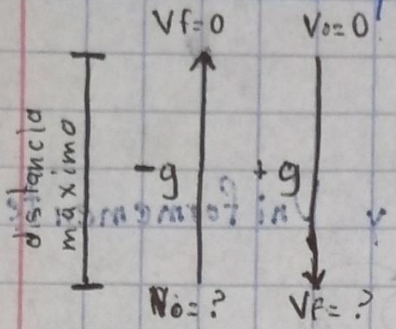 Vf=0
Vo=0
distancia
maximo
-g
+g
Vo=?
Vf=?